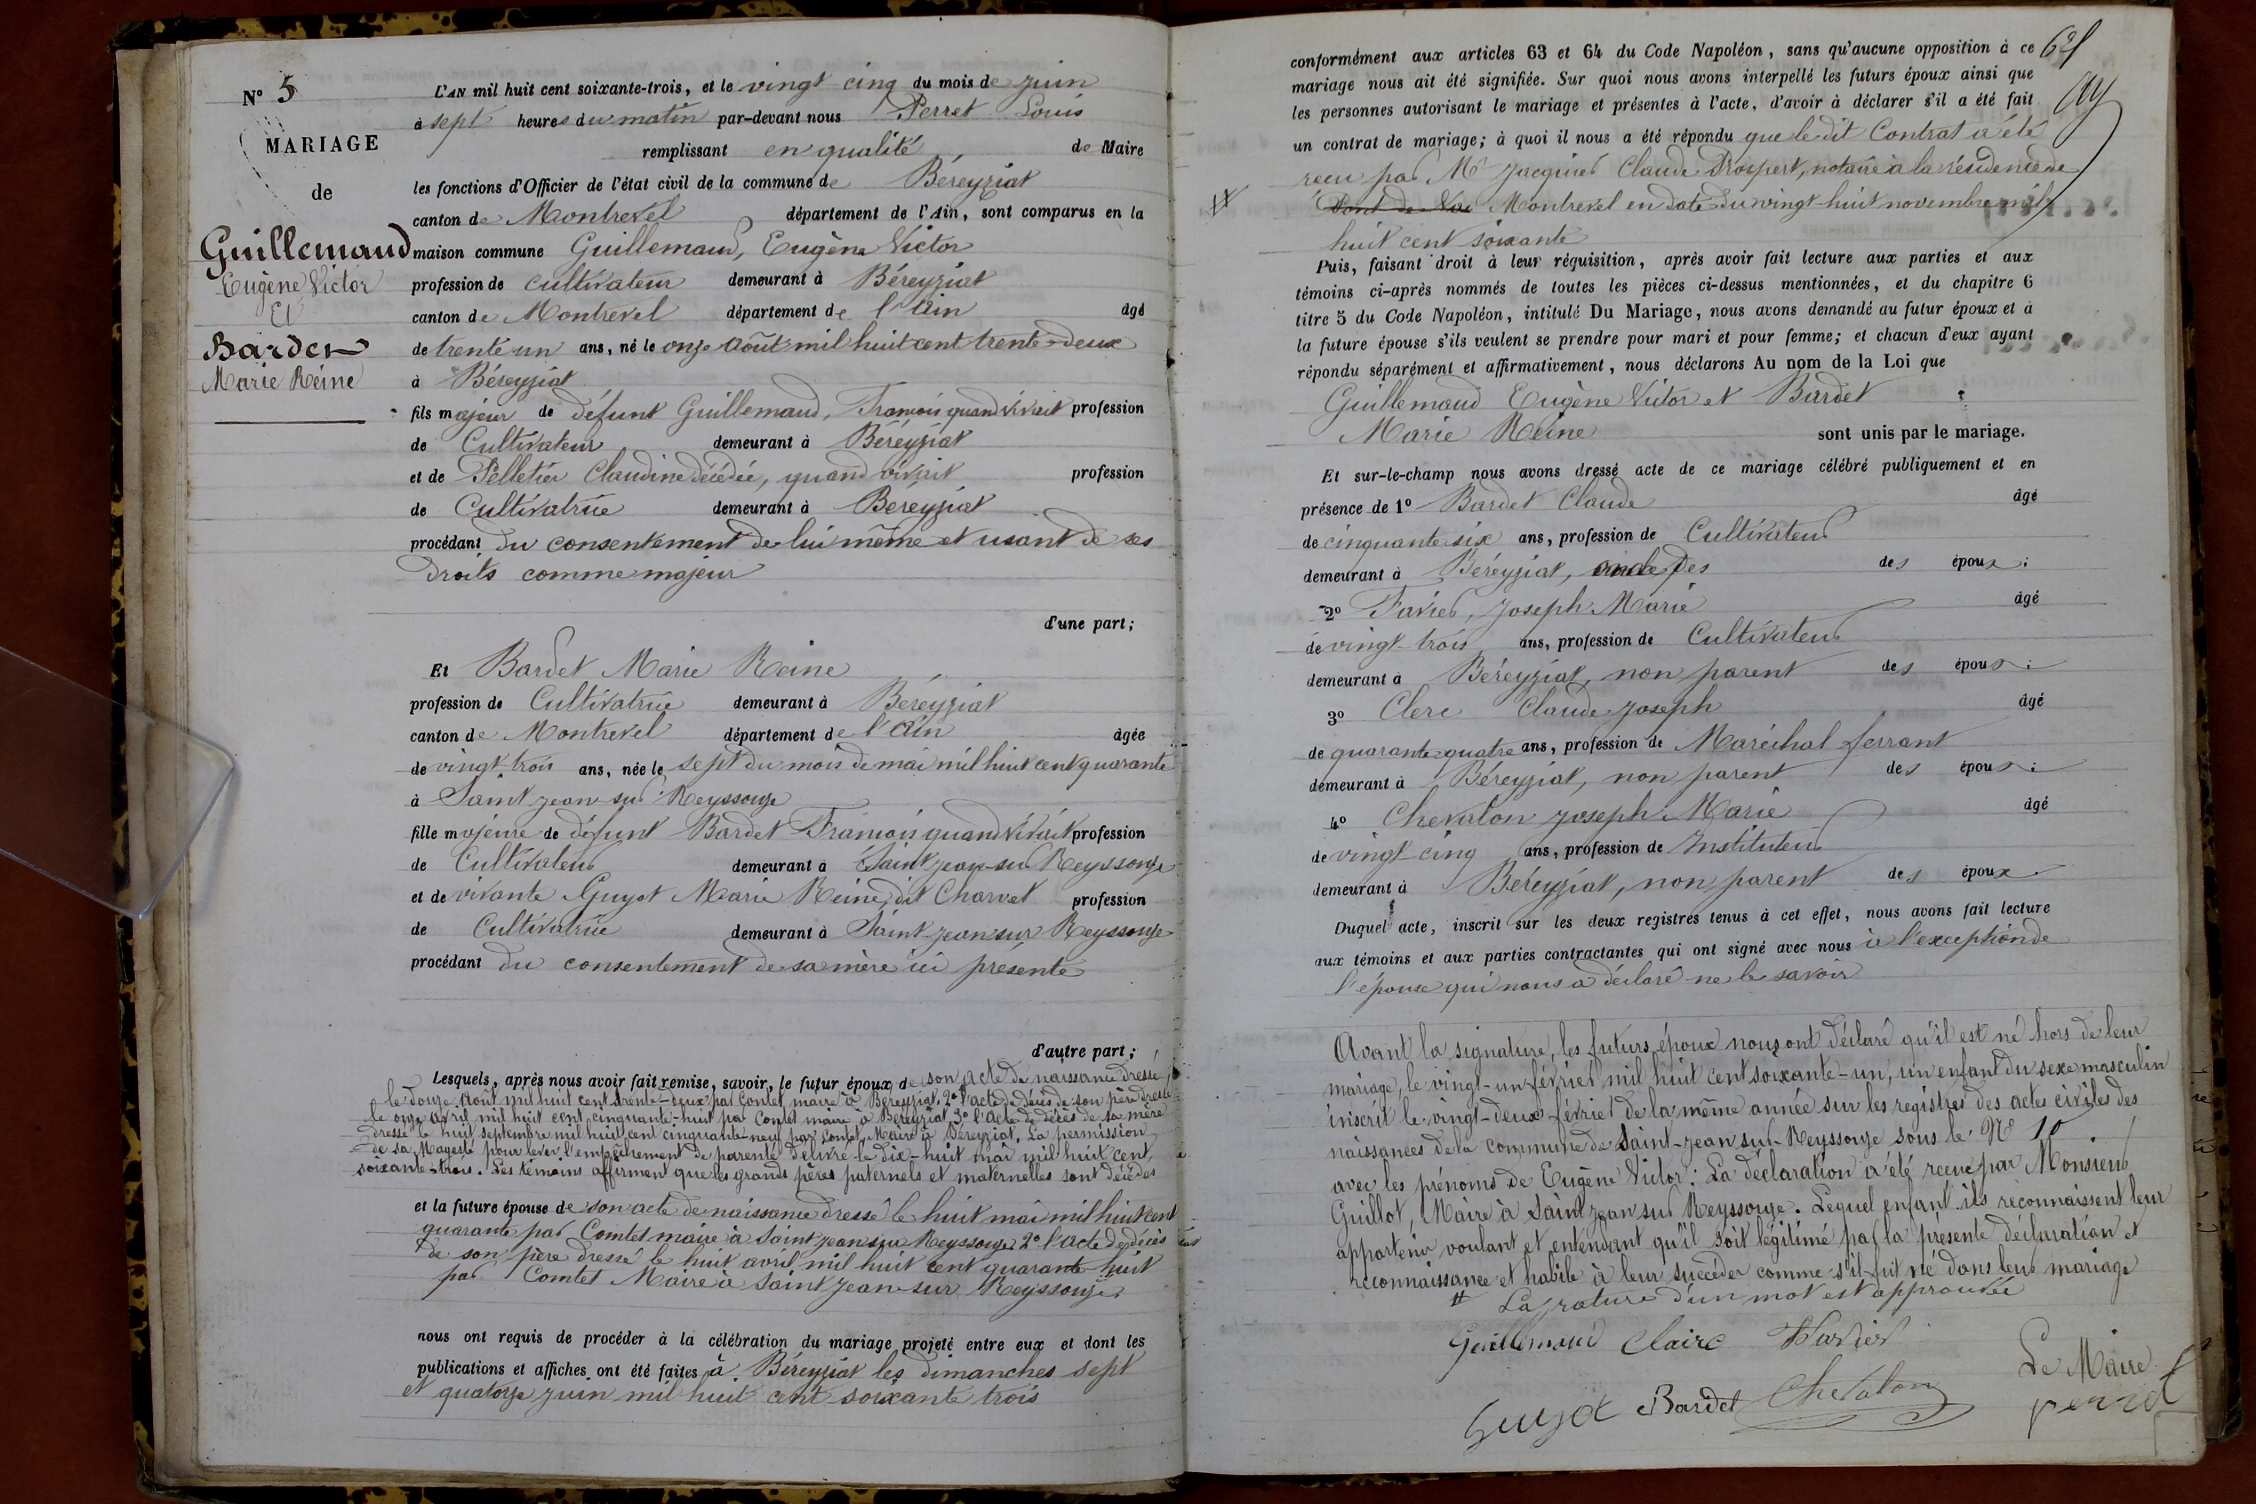 N° 5
MARIAGE
de
Guillemaud
Eugène Victor
Et
Bardet
Marie Reine
L'AN mil huit cent soixante-trois, et le vingt cinq du mois de juin
à sept heures du matin par-devant nous Perret Louis
remplissant en qualité de Maire
les fonctions d'Officier de l'état civil de la commune de Béréyziat
canton de Montrevel département de l'Ain, sont comparus en la
maison commune Guillemaud, Eugène Victor
profession de cultivateur demeurant à Béréyziat
canton de Montrevel département de l'Ain âgé
de trente un ans, né le onze Août mil huit cent trente-deux
à Béreyziat
fils majeur de défunt Guillemaud, François quand vivait profession
de Cultivateur demeurant à Béréyziat
et de Pelletier Claudine décédée, quand vivait profession
de Cultivatrice demeurant à Bereyziat
procédant du consentement de lui même et usant de ses
droits comme majeur
d'une part;
Et Bardet Marie Reine
profession de Cultivatrice demeurant à Béreyziat
canton de Montrevel département de l'Ain âgée
de vingt-trois ans, née le sept du mois de mai mil huit cent quarante
à Saint jean-sur-Reyssouze
fille majeure de défunt Bardet François quand vivait profession
de Cultivateur demeurant à Saint jean-sur Reyssouze
et de vivante Guyot Marie Reine dit Charvet profession
de Cultivatrice demeurant à Saint-jean sur Reyssouze
procédant du consentement de sa mère ici présente
d'autre part;
Lesquels, après nous avoir fait remise, savoir, le futur époux de son acte de naissance dressé
le douze Août mil huit cent trente-deux par Contet maire à Béreyziat, 2° l'acte de décès de son père dressé
le onze avril mil huit cent cinquante-huit par Contet maire à Béreyziat 3° l'acte de décès de sa mère
dressé le huit septembre mil huit cent cinquante-neuf par Contet, Maire à Béreyziat. La permission
de sa Majesté pour lever l'empêchement de parenté délivré le dix-huit mai mil huit cent
soixante-trois. Les témoins affirment que les grands pères paternels et maternelles sont décédés
et la future épouse de son acte de naissance dressé le huit mai mil huit cent
quarante par Comtet maire à Saint jean sur Reyssouze, 2° l'acte de décès
de son père dressé le huit avril mil huit cent quarante-huit
par Comtet Maire à Saint jean sur Reyssouze
nous ont requis de procéder à la célébration du mariage projeté entre eux et dont les
publications et affiches ont été faites à Béreyziat les dimanches sept
et quatorze juin mil huit cent soixante trois
conformément aux articles 63 et 64 du Code Napoléon, sans qu'aucune opposition à ce
mariage nous ait été signifiée. Sur quoi nous avons interpellé les futurs époux ainsi que
les personnes autorisant le mariage et présentes à l'acte, d'avoir à déclarer s'il a été fait
un contrat de mariage; à quoi il nous a été répondu que le dit Contrat a été
reçu par Me Jacquier Claude Prospert, notaire à la résidence de
Pont de Vaux Montrevel en date du vingt-huit novembre mil
huit cent soixante
Puis, faisant droit à leur réquisition, après avoir fait lecture aux parties et aux
témoins ci-après nommés de toutes les pièces ci-dessus mentionnées, et du chapitre 6
titre 5 du Code Napoléon, intitulé Du Mariage, nous avons demandé au futur époux et à
la future épouse s'ils veulent se prendre pour mari et pour femme; et chacun d'eux ayant
répondu séparément et affirmativement, nous déclarons Au nom de la Loi que
Guillemaud Eugène Victor et Bardet
Marie Reine sont unis par le mariage.
Et sur-le-champ nous avons dressé acte de ce mariage célébré publiquement et en
présence de 1° Bardet Claude âgé
de cinquante six ans, profession de Cultivateur
demeurant à Béréyziat, oncle des des époux:
2° Favier, Joseph Marie âgé
de vingt-trois ans, profession de Cultivateur
demeurant à Béreyziat, non parent des époux:
3° Clerc Claude Joseph âgé
de quarante-quatre ans, profession de Maréchal ferrant
demeurant à Béreyziat, non parent des époux:
4° Chevalon Joseph Marie âgé
de vingt-cinq ans, profession de Instituteur
demeurant à Béreyziat, non parent des époux.
Duquel acte, inscrit sur les deux registres tenus à cet effet, nous avons fait lecture
aux témoins et aux parties contractantes qui ont signé avec nous à l'exception de
l'épouse qui nous a déclaré ne le savoir
Avant la signature, les futurs époux nous ont déclaré qu'il est né hors de leur
mariage, le vingt-un février mil huit cent soixante-un, un enfant du sexe masculin
inscrit le vingt-deux février de la même année sur les registres des actes civiles des
naissances de la commune de Saint-jean sur-Reyssouze sous le N° 10
avec les prénoms de Eugène Victor: La déclaration a été reçue par Monsieur
Guillot, Maire à Saint jean sur Reyssouze. Lequel enfant ils reconnaissent leur
appartenir voulant et entendant qu'il soit légitimé par la présente déclaration et
reconnaissance et habile à leur succéder comme s'il fut né dans leur mariage
# La rature d'un mot est approuvée
Guillemaud Claire
Le Maire
Guyot Bardet Chevalon Perret